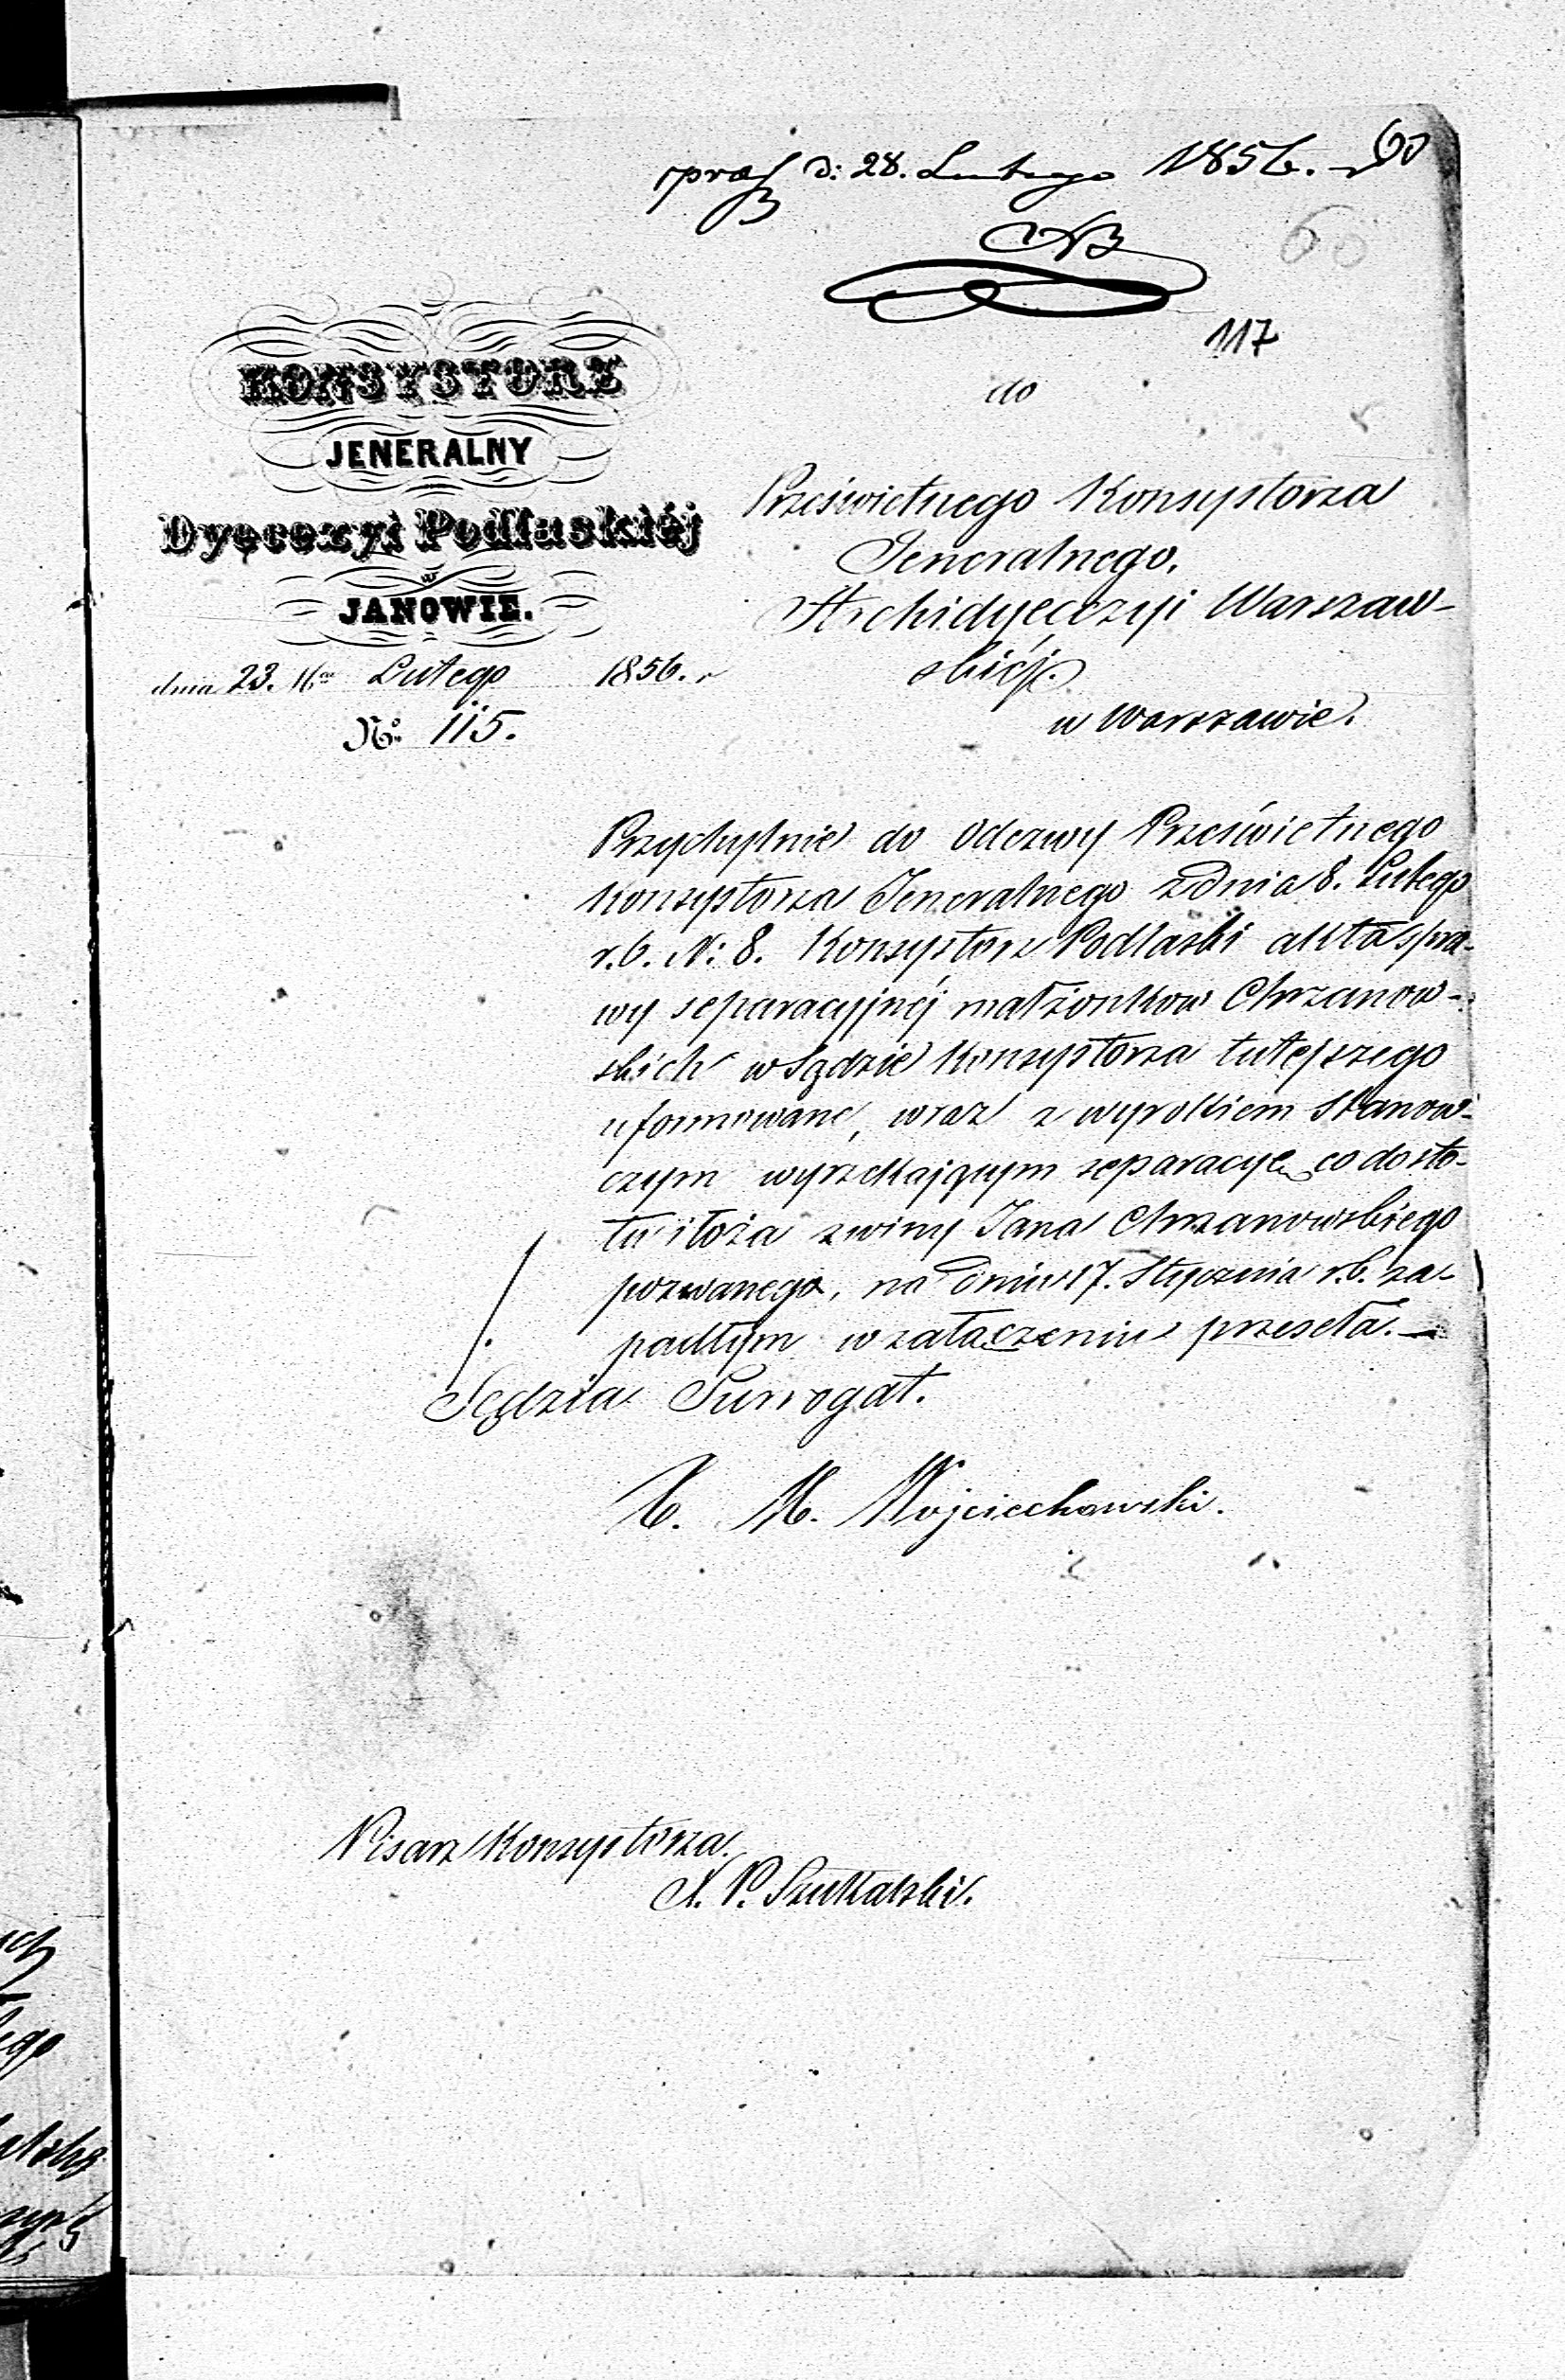 præs d: 28. Lutego 1856. r
60
117
KONSYSTORZ
JENERALNY
Dyecezyi Podlaskiéj
w
JANOWIE.
dnia 23. Lutego 1856. r
No: 115.
do
Prześwietnego Konsystorza
Jeneralnego.
Archidyecezyi Warszaw-
skiéj.
w Warszawie.
Przychylnie do Odezwy Prześwietnego
Konsystorza Jeneralnego z dnia 8. Lutego
r.b. N: 8. Konsystorz Podlaski akta spra-
wy separacyjnéj małżonków Chrzanow-
skich w Sądzie Konsystorza tutejszego
uformowane, wraz z wyrokiem Stanow-
czym wyrzekającym separacyę co do sto-
łu i łoża z winy Jana Chrzanowskiego
pozwanego, na dniu 17. Stycznia r.b. za-
padłym w załączeniu przeseła.—
Sędzia Surrogat.
X. M. Wojciechowski.
Pisarz Konsystorza.
X. P. Szukalski.